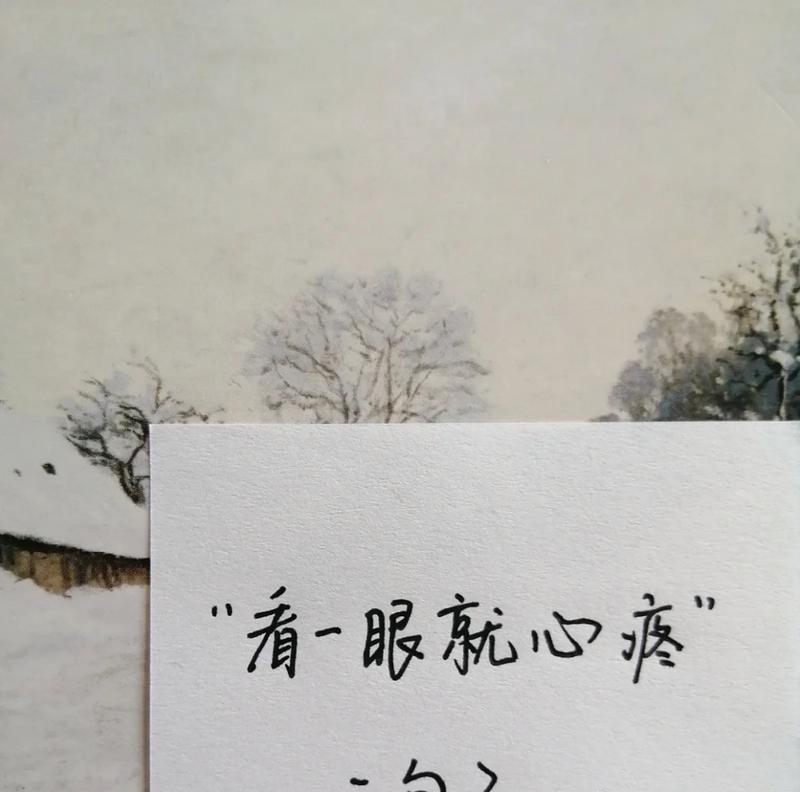 “看一眼就心疼”